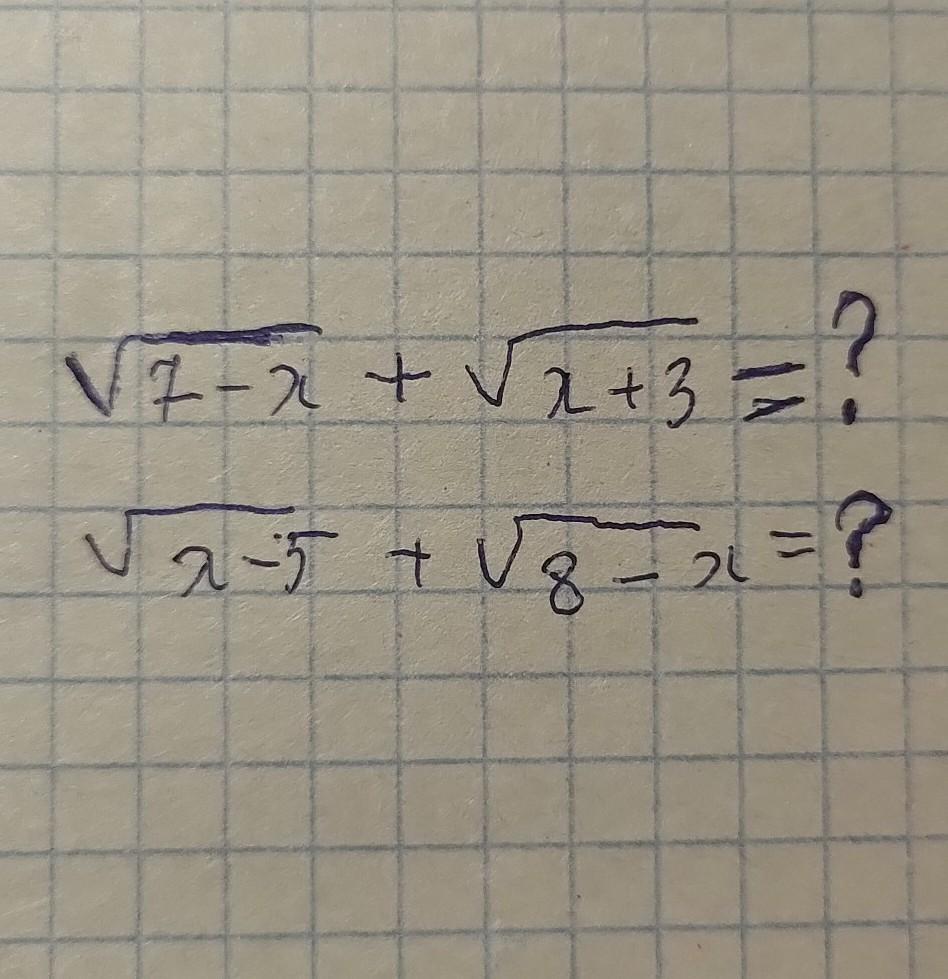 √(7-x) + √(x+3) = ?
√(x-5) + √(8-x) = ?